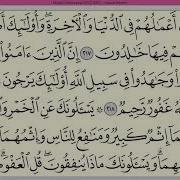 أَعْمَـٰلُهُمْ فِى ٱلدُّنْيَا وَٱلْـَٔاخِرَةِ ۖ وَأُو۟لَـٰٓئِكَ
فِيهَا خَـٰلِدُونَ ٢١٧ إِنَّ ٱلَّذِينَ ءَامَنُوا۟
وَجَـٰهَدُوا۟ فِى سَبِيلِ ٱللَّهِ أُو۟لَـٰٓئِكَ يَرْجُونَ
غَفُورٌ رَّحِيمٌ ٢١٨ يَسْـَٔلُونَكَ عَنِ ٱلْخَمْرِ
إِثْمٌ كَبِيرٌ وَمَنَـٰفِعُ لِلنَّاسِ وَإِثْمُهُمَآ
وَيَسْـَٔلُونَكَ مَاذَا يُنفِقُونَ قُلِ ٱلْعَفْوَ